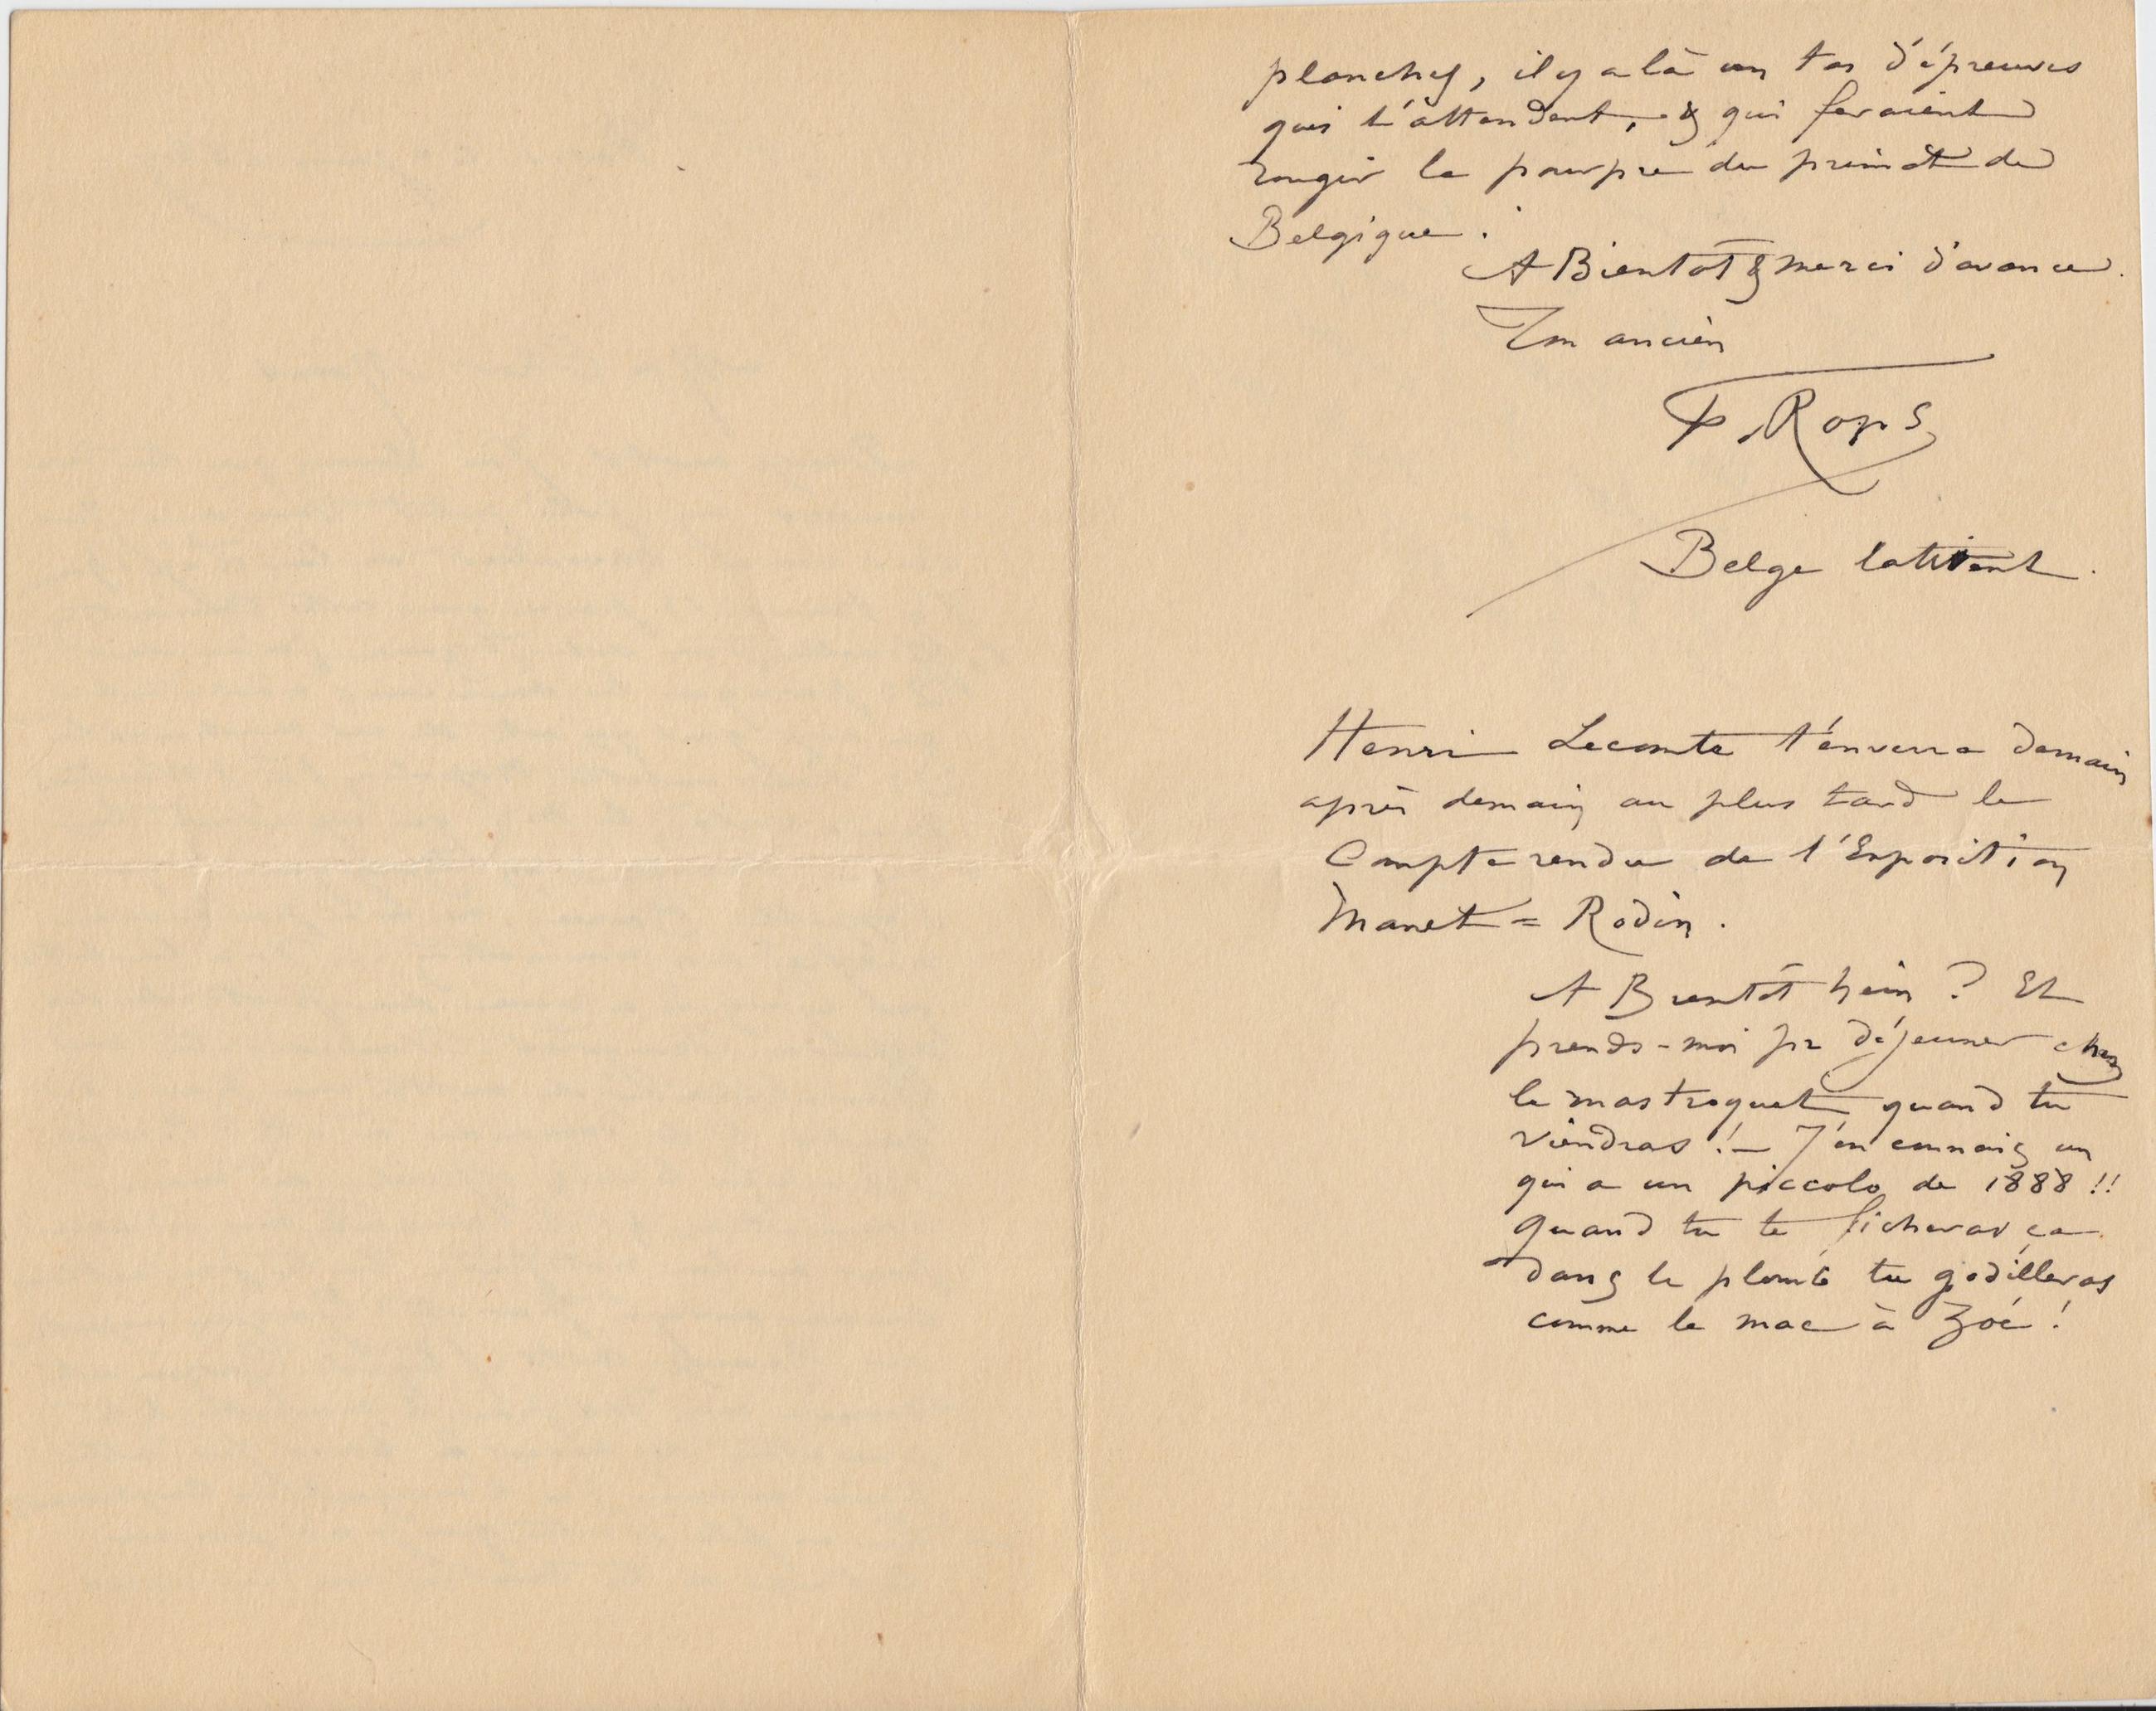 planches, il y a là un tas d'épreuves
qui t'attendent, & qui feraient
rougir la pourpre du primat de
Belgique.
A Bientôt & merci d'avance.
Ton ancien
F. Rops
Belge latitant.
Henri Lecomte t'enverra demain
après demain au plus tard le
Compte rendu de l'Exposition
Manet = Rodin.
A Bientôt hein ? Et
prends-moi pr déjeuner chez
le mastroquet quand tu
viendras ! – J'en connais un
qui a un piccolo de 1888 !!
Quand tu te ficheras ça
dans le plomb tu godilleras
comme le mac à Zoé !